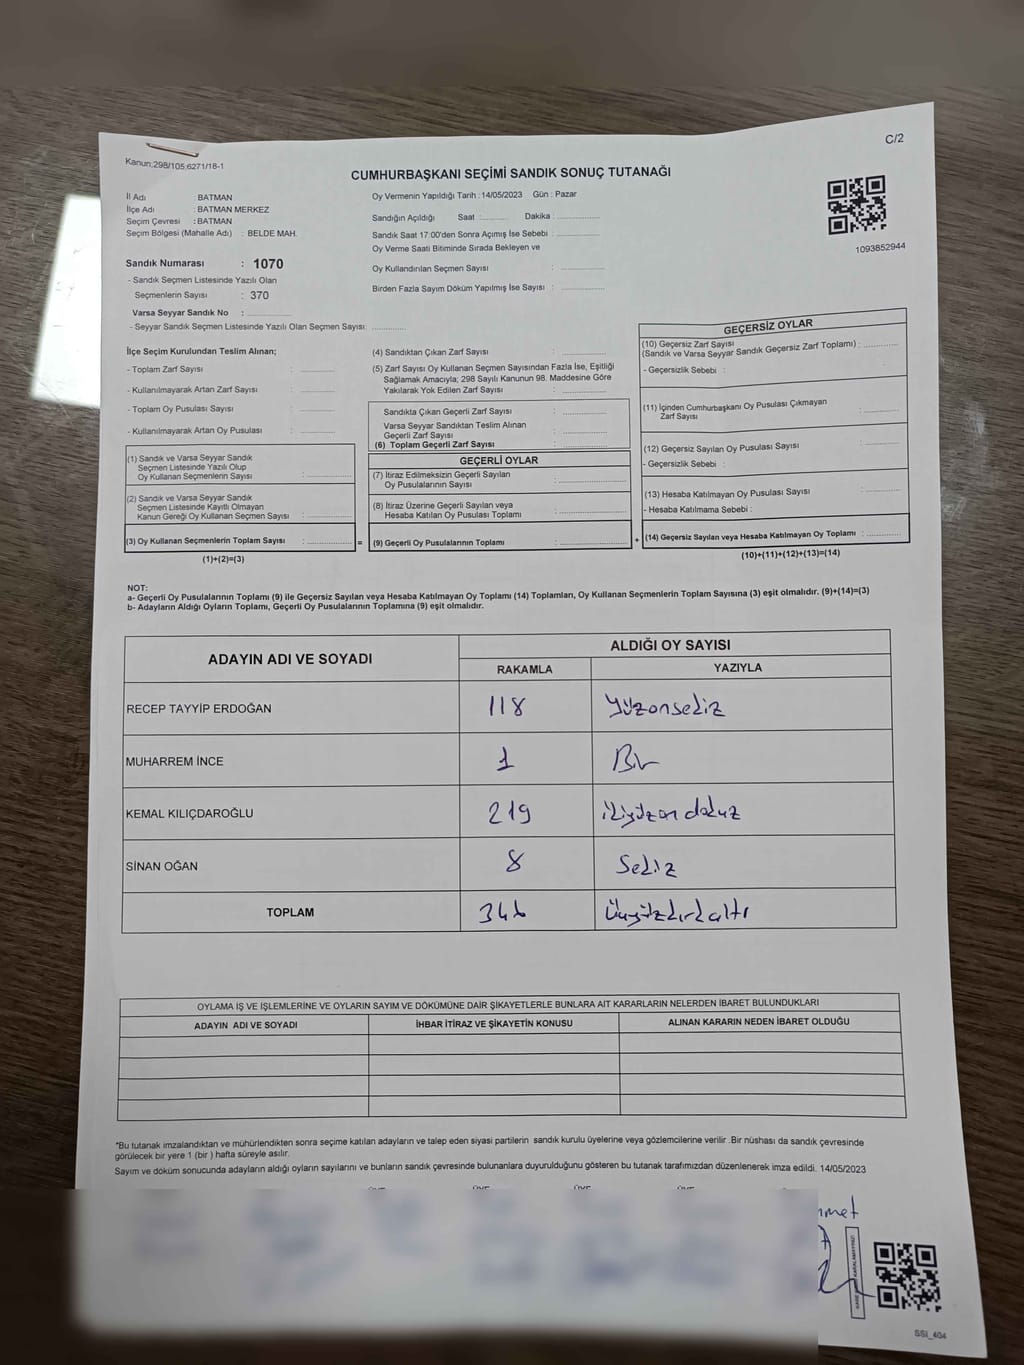 C/2
Kanun;298/105;6271/18-1
CUMHURBAŞKANI SEÇİMİ SANDIK SONUÇ TUTANAĞI
İl Adı : BATMAN
İlçe Adı : BATMAN MERKEZ
Seçim Çevresi : BATMAN
Seçim Bölgesi (Mahalle Adı) : BELDE MAH.
Sandık Numarası : 1070
- Sandık Seçmen Listesinde Yazılı Olan
Seçmenlerin Sayısı : 370
Varsa Seyyar Sandık No : ..............
- Seyyar Sandık Seçmen Listesinde Yazılı Olan Seçmen Sayısı: ...........
Oy Vermenin Yapıldığı Tarih : 14/05/2023 Gün : Pazar
Sandığın Açıldığı Saat :......... Dakika : ..............
Sandık Saat 17:00'den Sonra Açımış İse Sebebi : ..............
Oy Verme Saati Bitiminde Sırada Bekleyen ve
Oy Kullandırılan Seçmen Sayısı : ..............
Birden Fazla Sayım Döküm Yapılmış İse Sayısı : ..............
1093852944
İlçe Seçim Kurulundan Teslim Alınan;
- Toplam Zarf Sayısı : ...........
- Kullanılmayarak Artan Zarf Sayısı : ...........
- Toplam Oy Pusulası Sayısı : ...........
- Kullanılmayarak Artan Oy Pusulası : ...........
(1) Sandık ve Varsa Seyyar Sandık
Seçmen Listesinde Yazılı Olup
Oy Kullanan Seçmenlerin Sayısı : ..............
(2) Sandık ve Varsa Seyyar Sandık
Seçmen Listesinde Kayıtlı Olmayan
Kanun Gereği Oy Kullanan Seçmen Sayısı : ..............
(3) Oy Kullanan Seçmenlerin Toplam Sayısı : .............. =
(1)+(2)=(3)
(4) Sandıktan Çıkan Zarf Sayısı : ..............
(5) Zarf Sayısı Oy Kullanan Seçmen Sayısından Fazla İse, Eşitliği
Sağlamak Amacıyla; 298 Sayılı Kanunun 98. Maddesine Göre
Yakılarak Yok Edilen Zarf Sayısı : ..............
Sandıkta Çıkan Geçerli Zarf Sayısı : ..............
Varsa Seyyar Sandıktan Teslim Alınan
Geçerli Zarf Sayısı : ..............
(6) Toplam Geçerli Zarf Sayısı : ..............
GEÇERLİ OYLAR
(7) İtiraz Edilmeksizin Geçerli Sayılan
Oy Pusulalarının Sayısı : ..............
(8) İtiraz Üzerine Geçerli Sayılan veya
Hesaba Katılan Oy Pusulası Toplamı : ..............
(9) Geçerli Oy Pusulalarının Toplamı : .............. +
GEÇERSİZ OYLAR
(10) Geçersiz Zarf Sayısı
(Sandık ve Varsa Seyyar Sandık Geçersiz Zarf Toplamı) : ...........
- Geçersizlik Sebebi :
(11) İçinden Cumhurbaşkanı Oy Pusulası Çıkmayan
Zarf Sayısı : ...........
(12) Geçersiz Sayılan Oy Pusulası Sayısı : ...........
- Geçersizlik Sebebi :
(13) Hesaba Katılmayan Oy Pusulası Sayısı : ...........
- Hesaba Katılmama Sebebi :
(14) Geçersiz Sayılan veya Hesaba Katılmayan Oy Toplamı : ...........
(10)+(11)+(12)+(13)=(14)
NOT:
a- Geçerli Oy Pusulalarının Toplamı (9) ile Geçersiz Sayılan veya Hesaba Katılmayan Oy Toplamı (14) Toplamları, Oy Kullanan Seçmenlerin Toplam Sayısına (3) eşit olmalıdır. (9)+(14)=(3)
b- Adayların Aldığı Oyların Toplamı, Geçerli Oy Pusulalarının Toplamına (9) eşit olmalıdır.
ADAYIN ADI VE SOYADI ALDIĞI OY SAYISI
RAKAMLA YAZIYLA
RECEP TAYYİP ERDOĞAN 118 Yüzonsekiz
MUHARREM İNCE 1 Bir
KEMAL KILIÇDAROĞLU 219 ikiyüzon dokuz
SİNAN OĞAN 8 Sekiz
TOPLAM 346 Üçyüzkırkaltı
OYLAMA İŞ VE İŞLEMLERİNE VE OYLARIN SAYIM VE DÖKÜMÜNE DAİR ŞİKAYETLERLE BUNLARA AİT KARARLARIN NELERDEN İBARET BULUNDUKLARI
ADAYIN ADI VE SOYADI İHBAR İTİRAZ VE ŞİKAYETİN KONUSU ALINAN KARARIN NEDEN İBARET OLDUĞU
"Bu tutanak imzalandıktan ve mühürlendikten sonra seçime katılan adayların ve talep eden siyasi partilerin sandık kurulu üyelerine veya gözlemcilerine verilir .Bir nüshası da sandık çevresinde
görülecek bir yere 1 (bir ) hafta süreyle asılır.
Sayım ve döküm sonucunda adayların aldığı oyların sayılarını ve bunların sandık çevresinde bulunanlara duyurulduğunu gösteren bu tutanak tarafımızdan düzenlenerek imza edildi. 14/05/2023
SSI_404